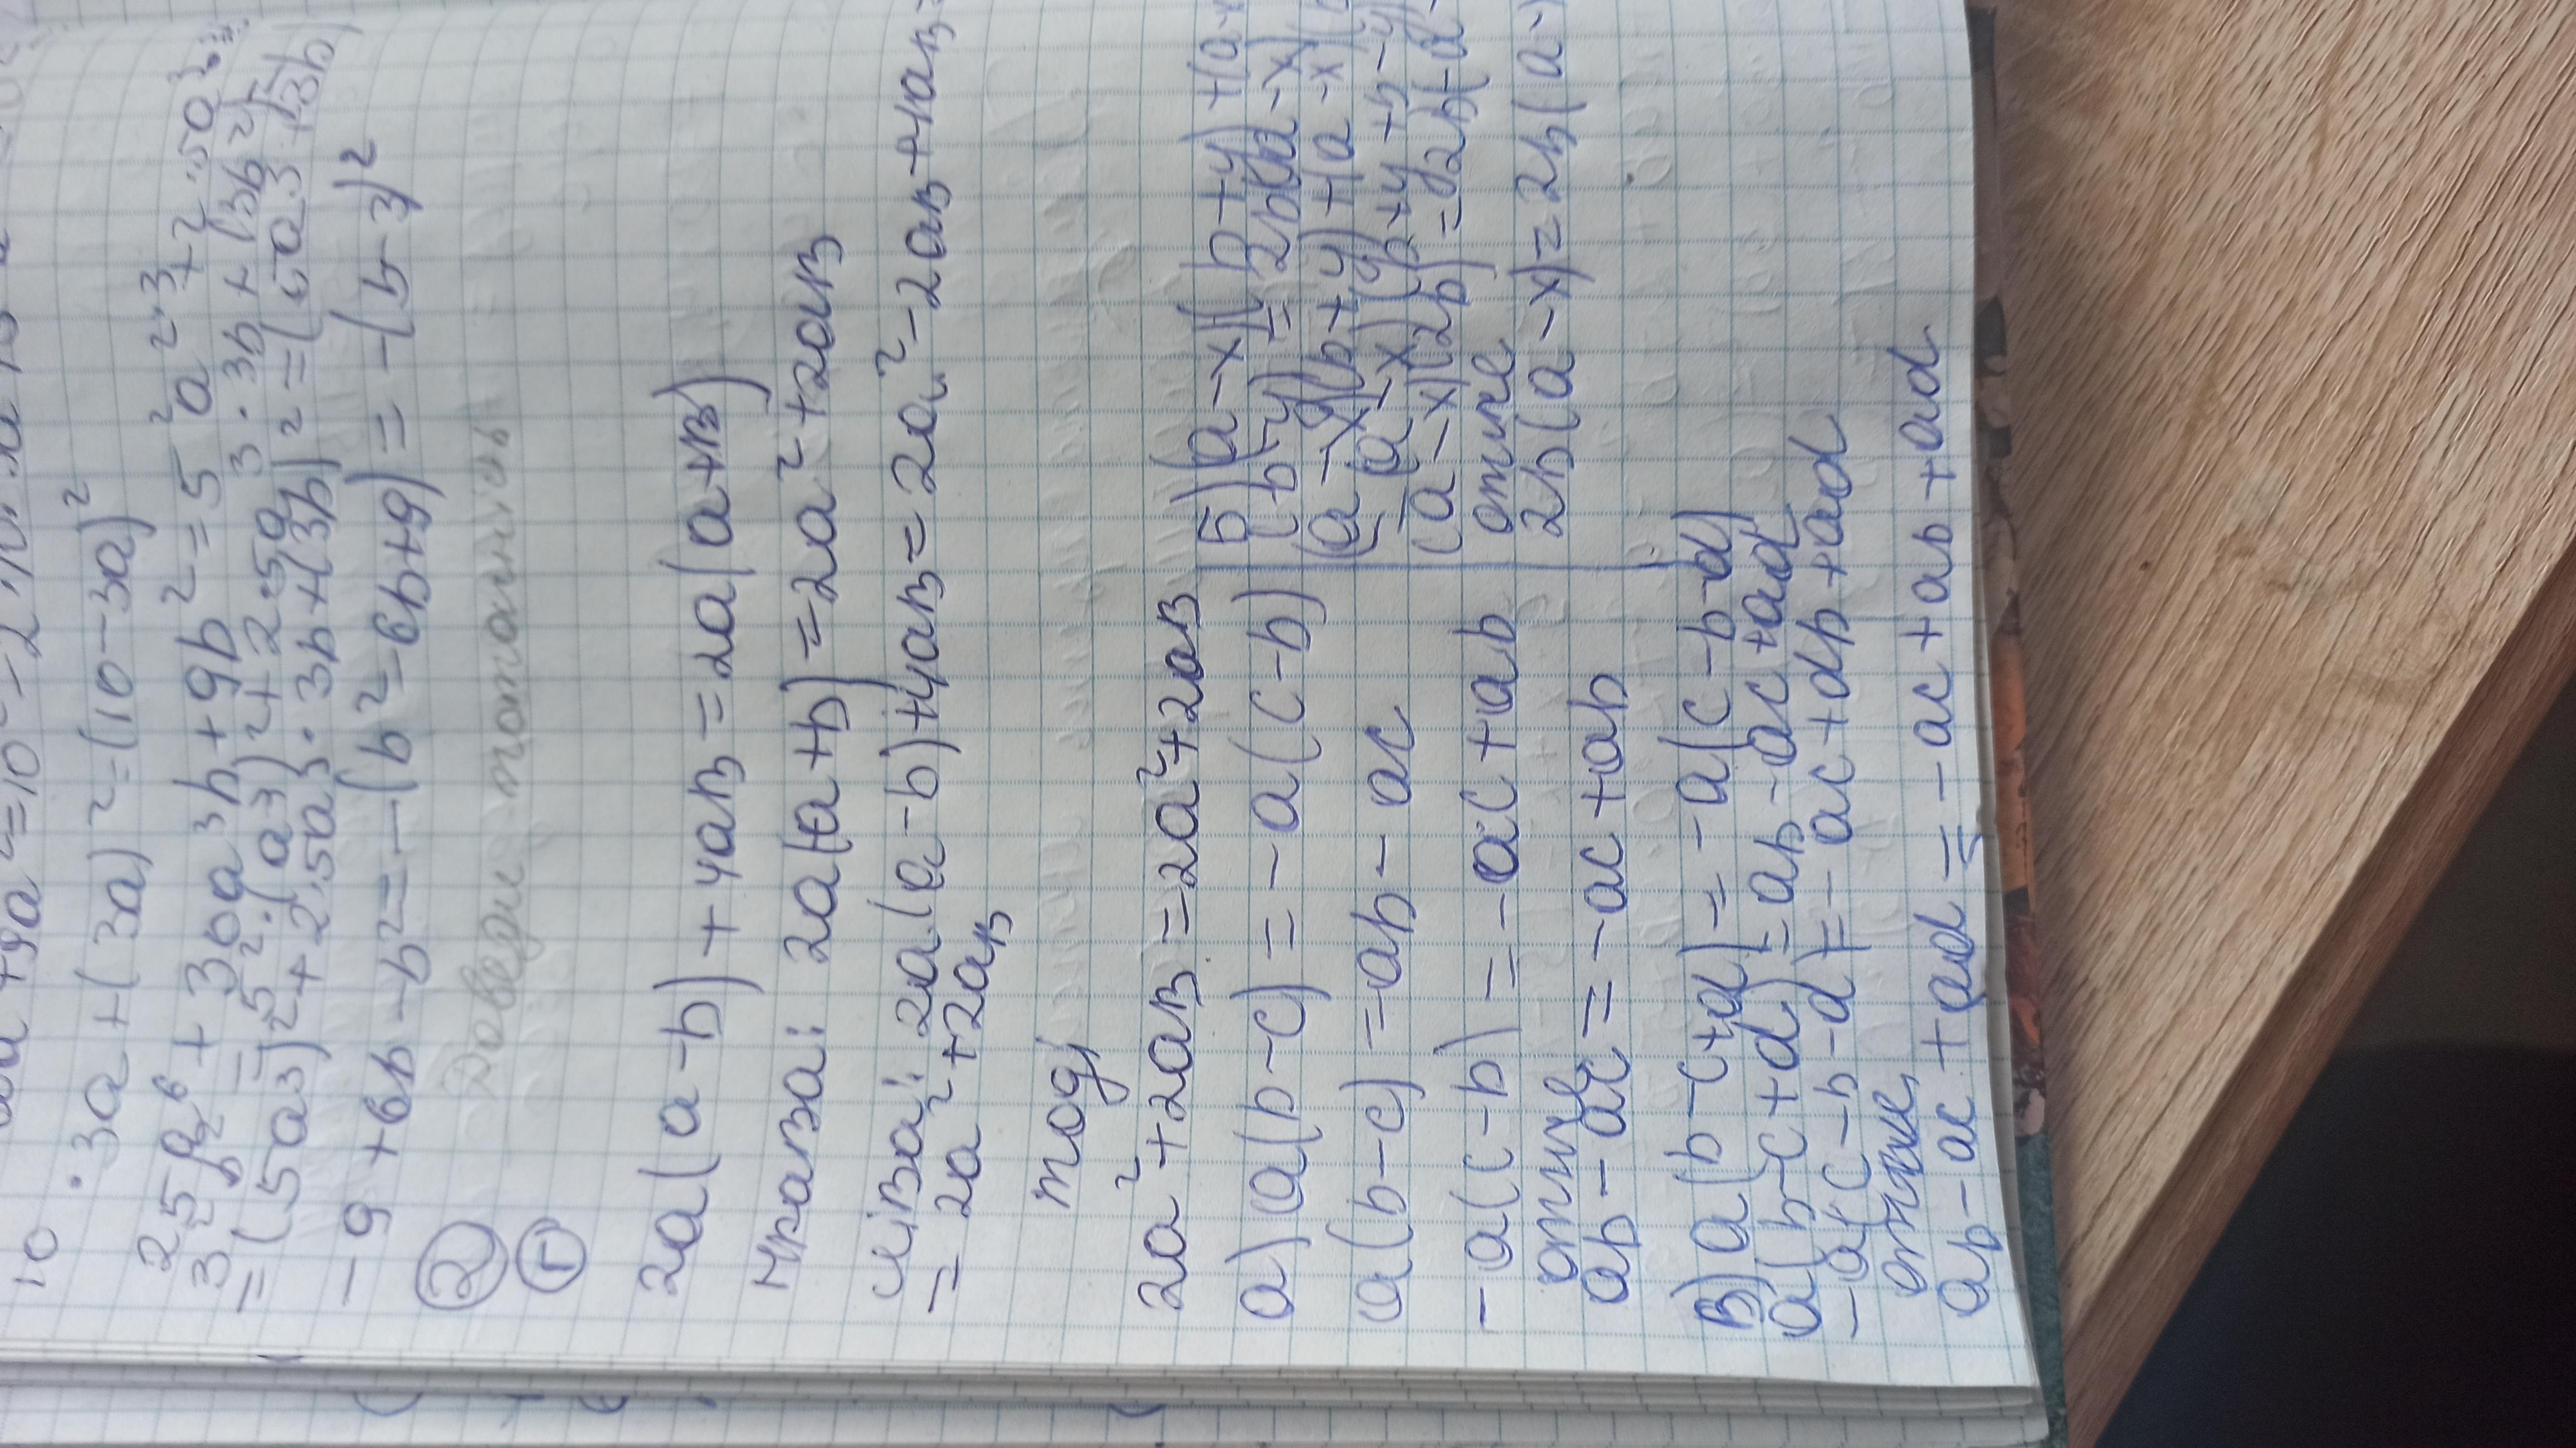 10 · 3a + (3a)² = (10 - 3a)²
+ 30a³b + 9b² = 5²a²·³ + 2·5a³·
3·3b + (3b)²
= (5a³)² + 2·5a³·3b + (3b)² = (5a³ + 3b)
-9 + 6b - b² = -(b² - 6b + 9) = -(b - 3)²
② Доведи тотожність
①
2a(a - b) + 4aв = 2a(a + в)
права: 2a(a + b) = 2a² + 2aв
ліва: 2a(a - b) + 4aв = 2a² - 2aв + 4aв =
= 2a² + 2aв
тоді
2a² + 2aв = 2a² + 2aв
а) a(b - c) = -a(c - b)
a(b - c) = ab - ac
-a(c - b) = -ac + ab
отже
ab - ac = -ac + ab
Б) (a - x)(b + y) + (a - x)
(b - y) = 2b(a - x)
(a - x)(b + y) + (a - x)(
(a - x)(b + y + b - y)
(a - x)(2b) = 2b(a -
отже
2b(a - x) = 2b(a -
В) a(b - c + d) = -a(c - b - d)
a(b - c + d) = ab - ac + ad
-a(c - b - d) = -ac + ab + ad
отже,
ab - ac + ad = -ac + ab + ad